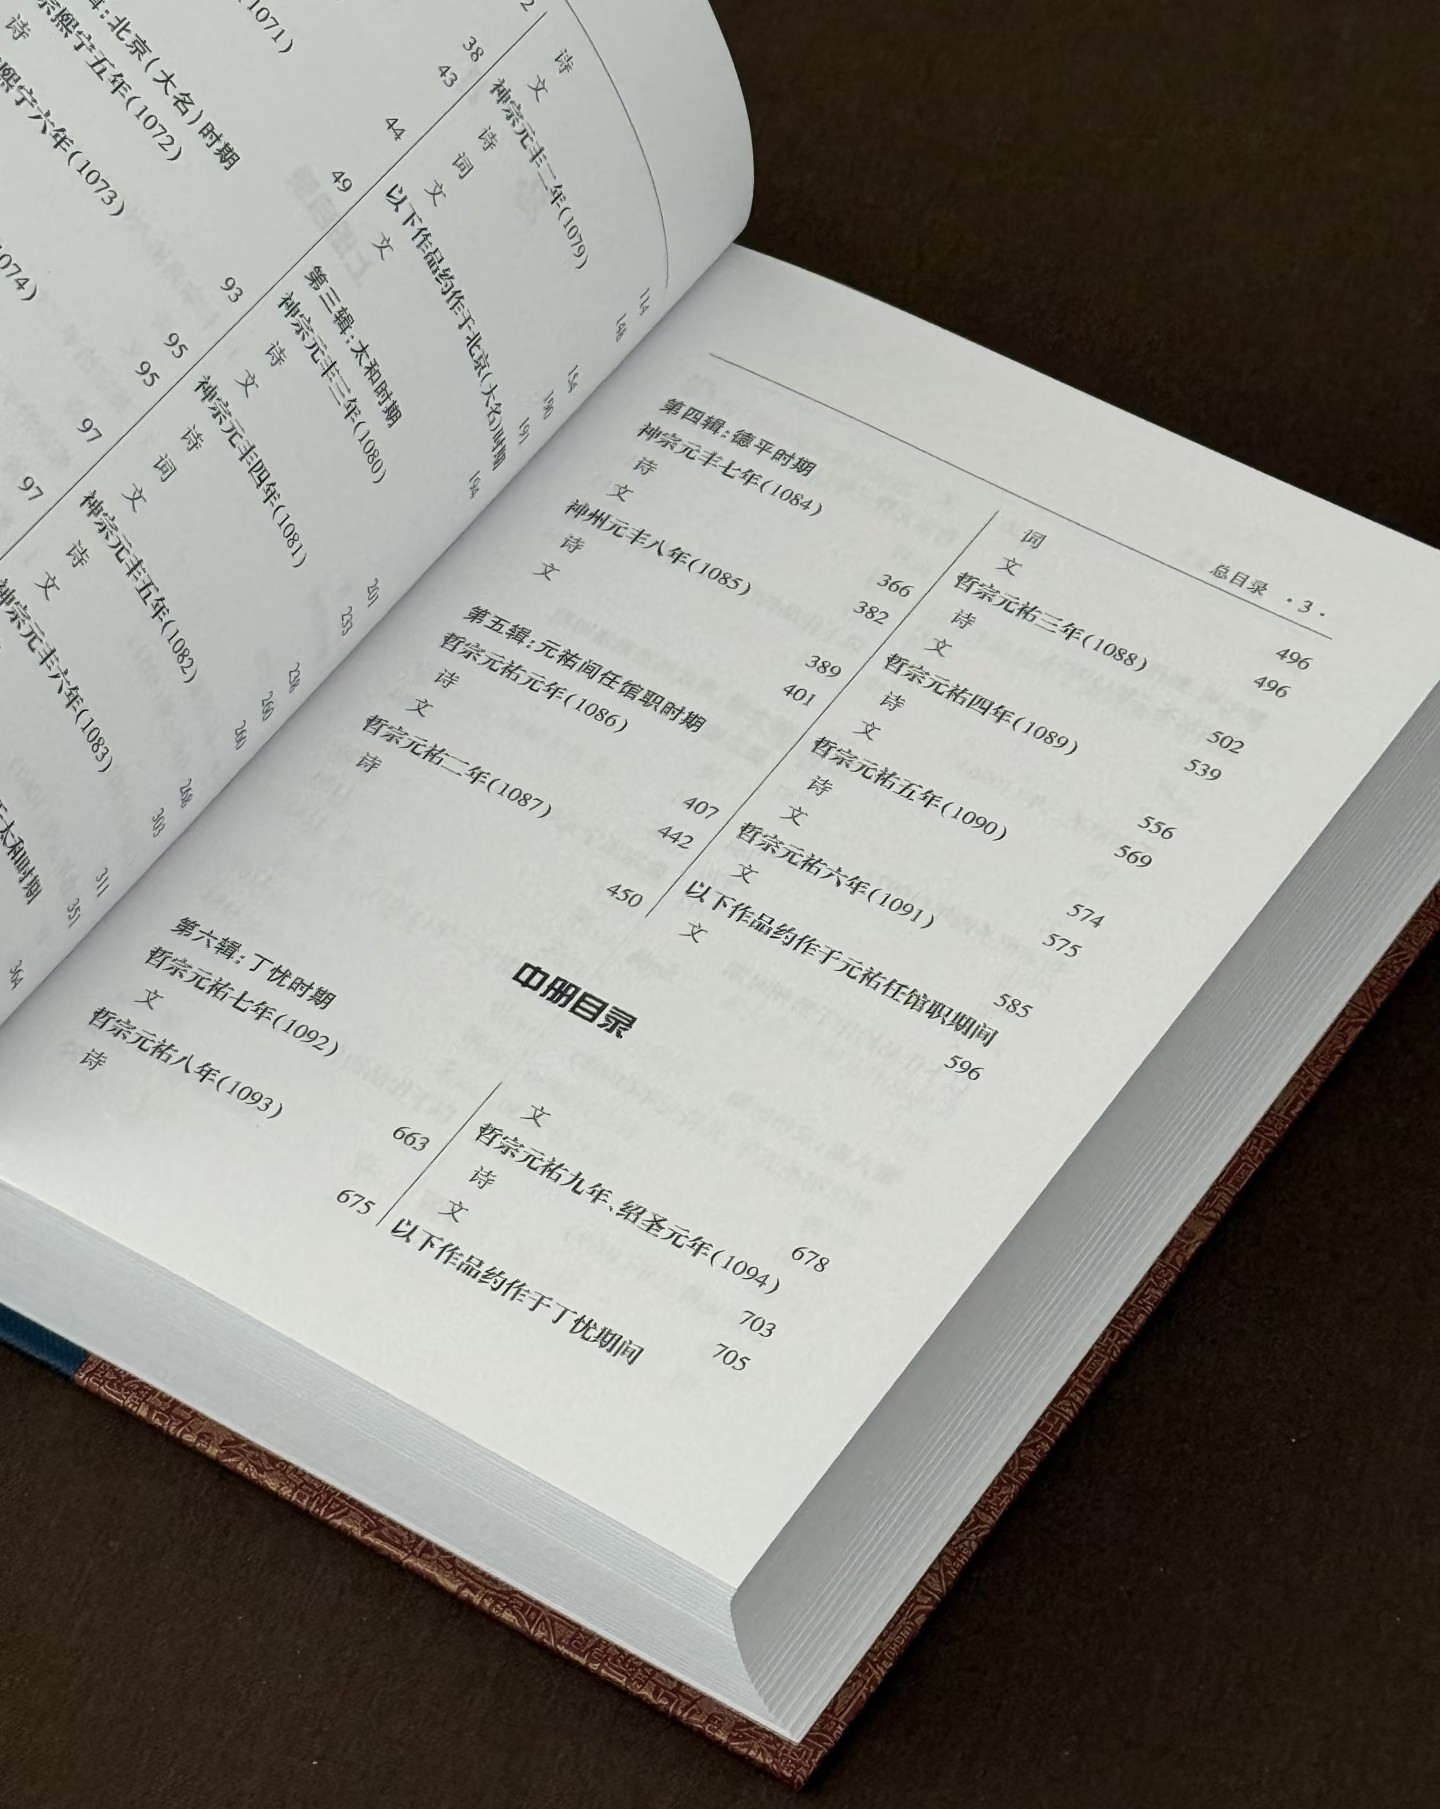 1071)
辑:北京(大名)时期
宗熙宁五年(1072)
诗
熙宁六年(1073)
1074)
38
43
44
49
93
95
95
97
97
诗 114
文 148
神宗元丰二年(1079)
诗 154
词 190
文 191
以下作品约作于北京(大名)时期
文 194
第三辑:太和时期
神宗元丰三年(1080)
诗 201
文 233
神宗元丰四年(1081)
诗 238
词 260
文 260
神宗元丰五年(1082)
诗 268
文 303
神宗元丰六年(1083)
311
351
于太和时期
364
总目录 ·3·
第四辑:德平时期
神宗元丰七年(1084)
诗 366
文 382
神州元丰八年(1085)
诗 389
文 401
第五辑:元祐间任馆职时期
哲宗元祐元年(1086)
诗 407
文 442
哲宗元祐二年(1087)
诗 450
词 496
文 496
哲宗元祐三年(1088)
诗 502
文 539
哲宗元祐四年(1089)
诗 556
文 569
哲宗元祐五年(1090)
诗 574
文 575
哲宗元祐六年(1091)
文 585
以下作品约作于元祐任馆职期间
文 596
中册目录
第六辑:丁忧时期
哲宗元祐七年(1092)
文 663
哲宗元祐八年(1093)
诗 675
文 678
哲宗元祐九年、绍圣元年(1094)
诗 703
文 705
以下作品约作于丁忧期间